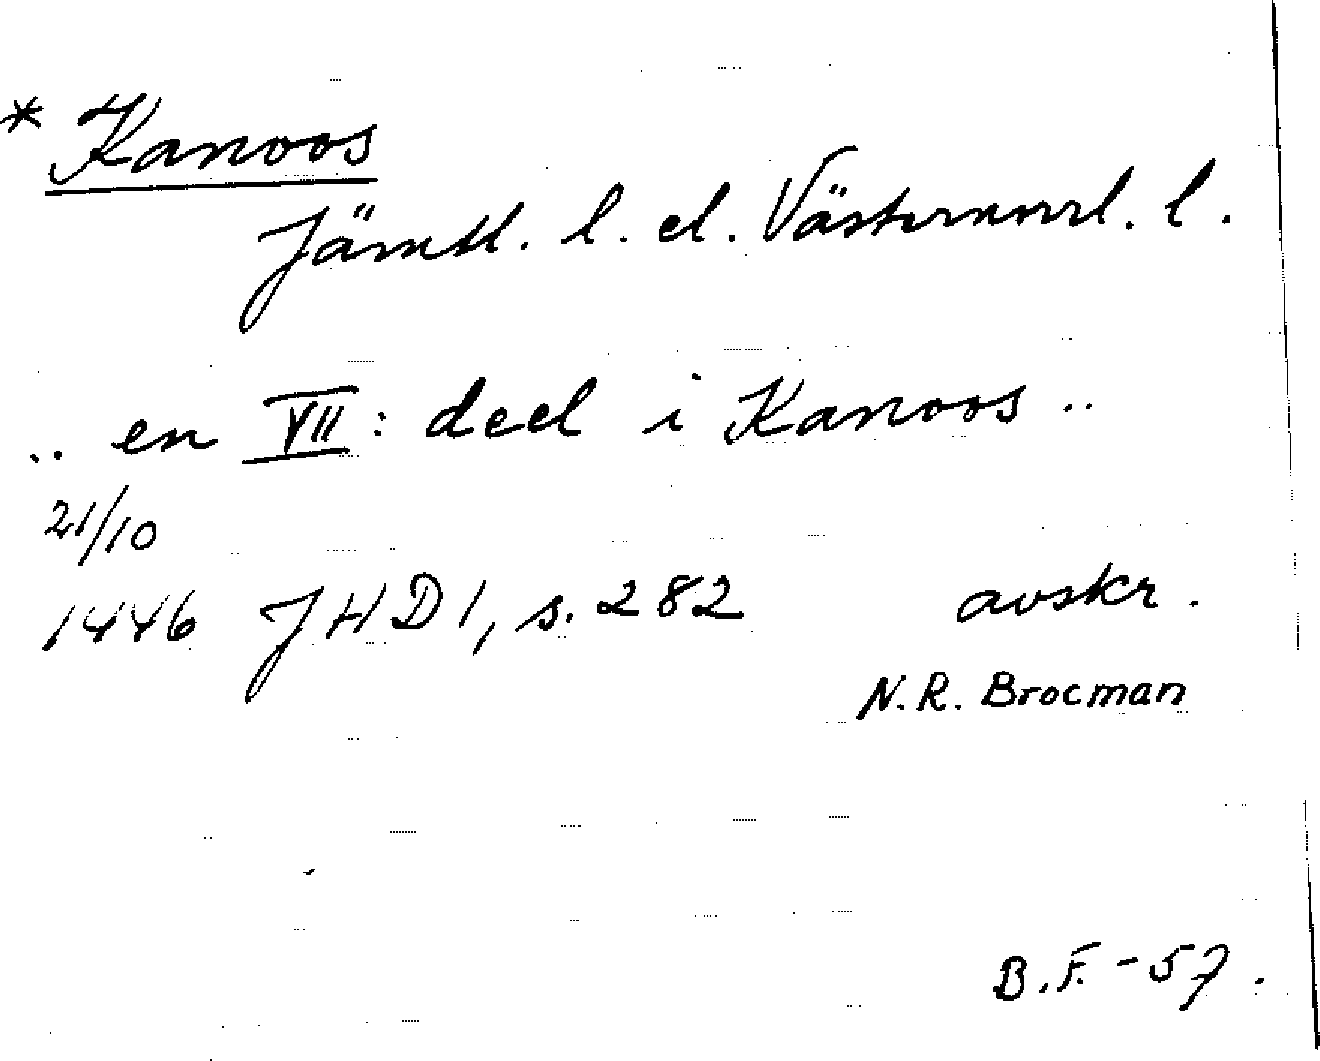 * Kanoos
Jämtl. l. el. Västernorrl. l.
.. en VII: deel i Kanoos ..
21/10
1446 JHD 1, s. 282 avskr.
N. R. Brocman
B. F. - 57.